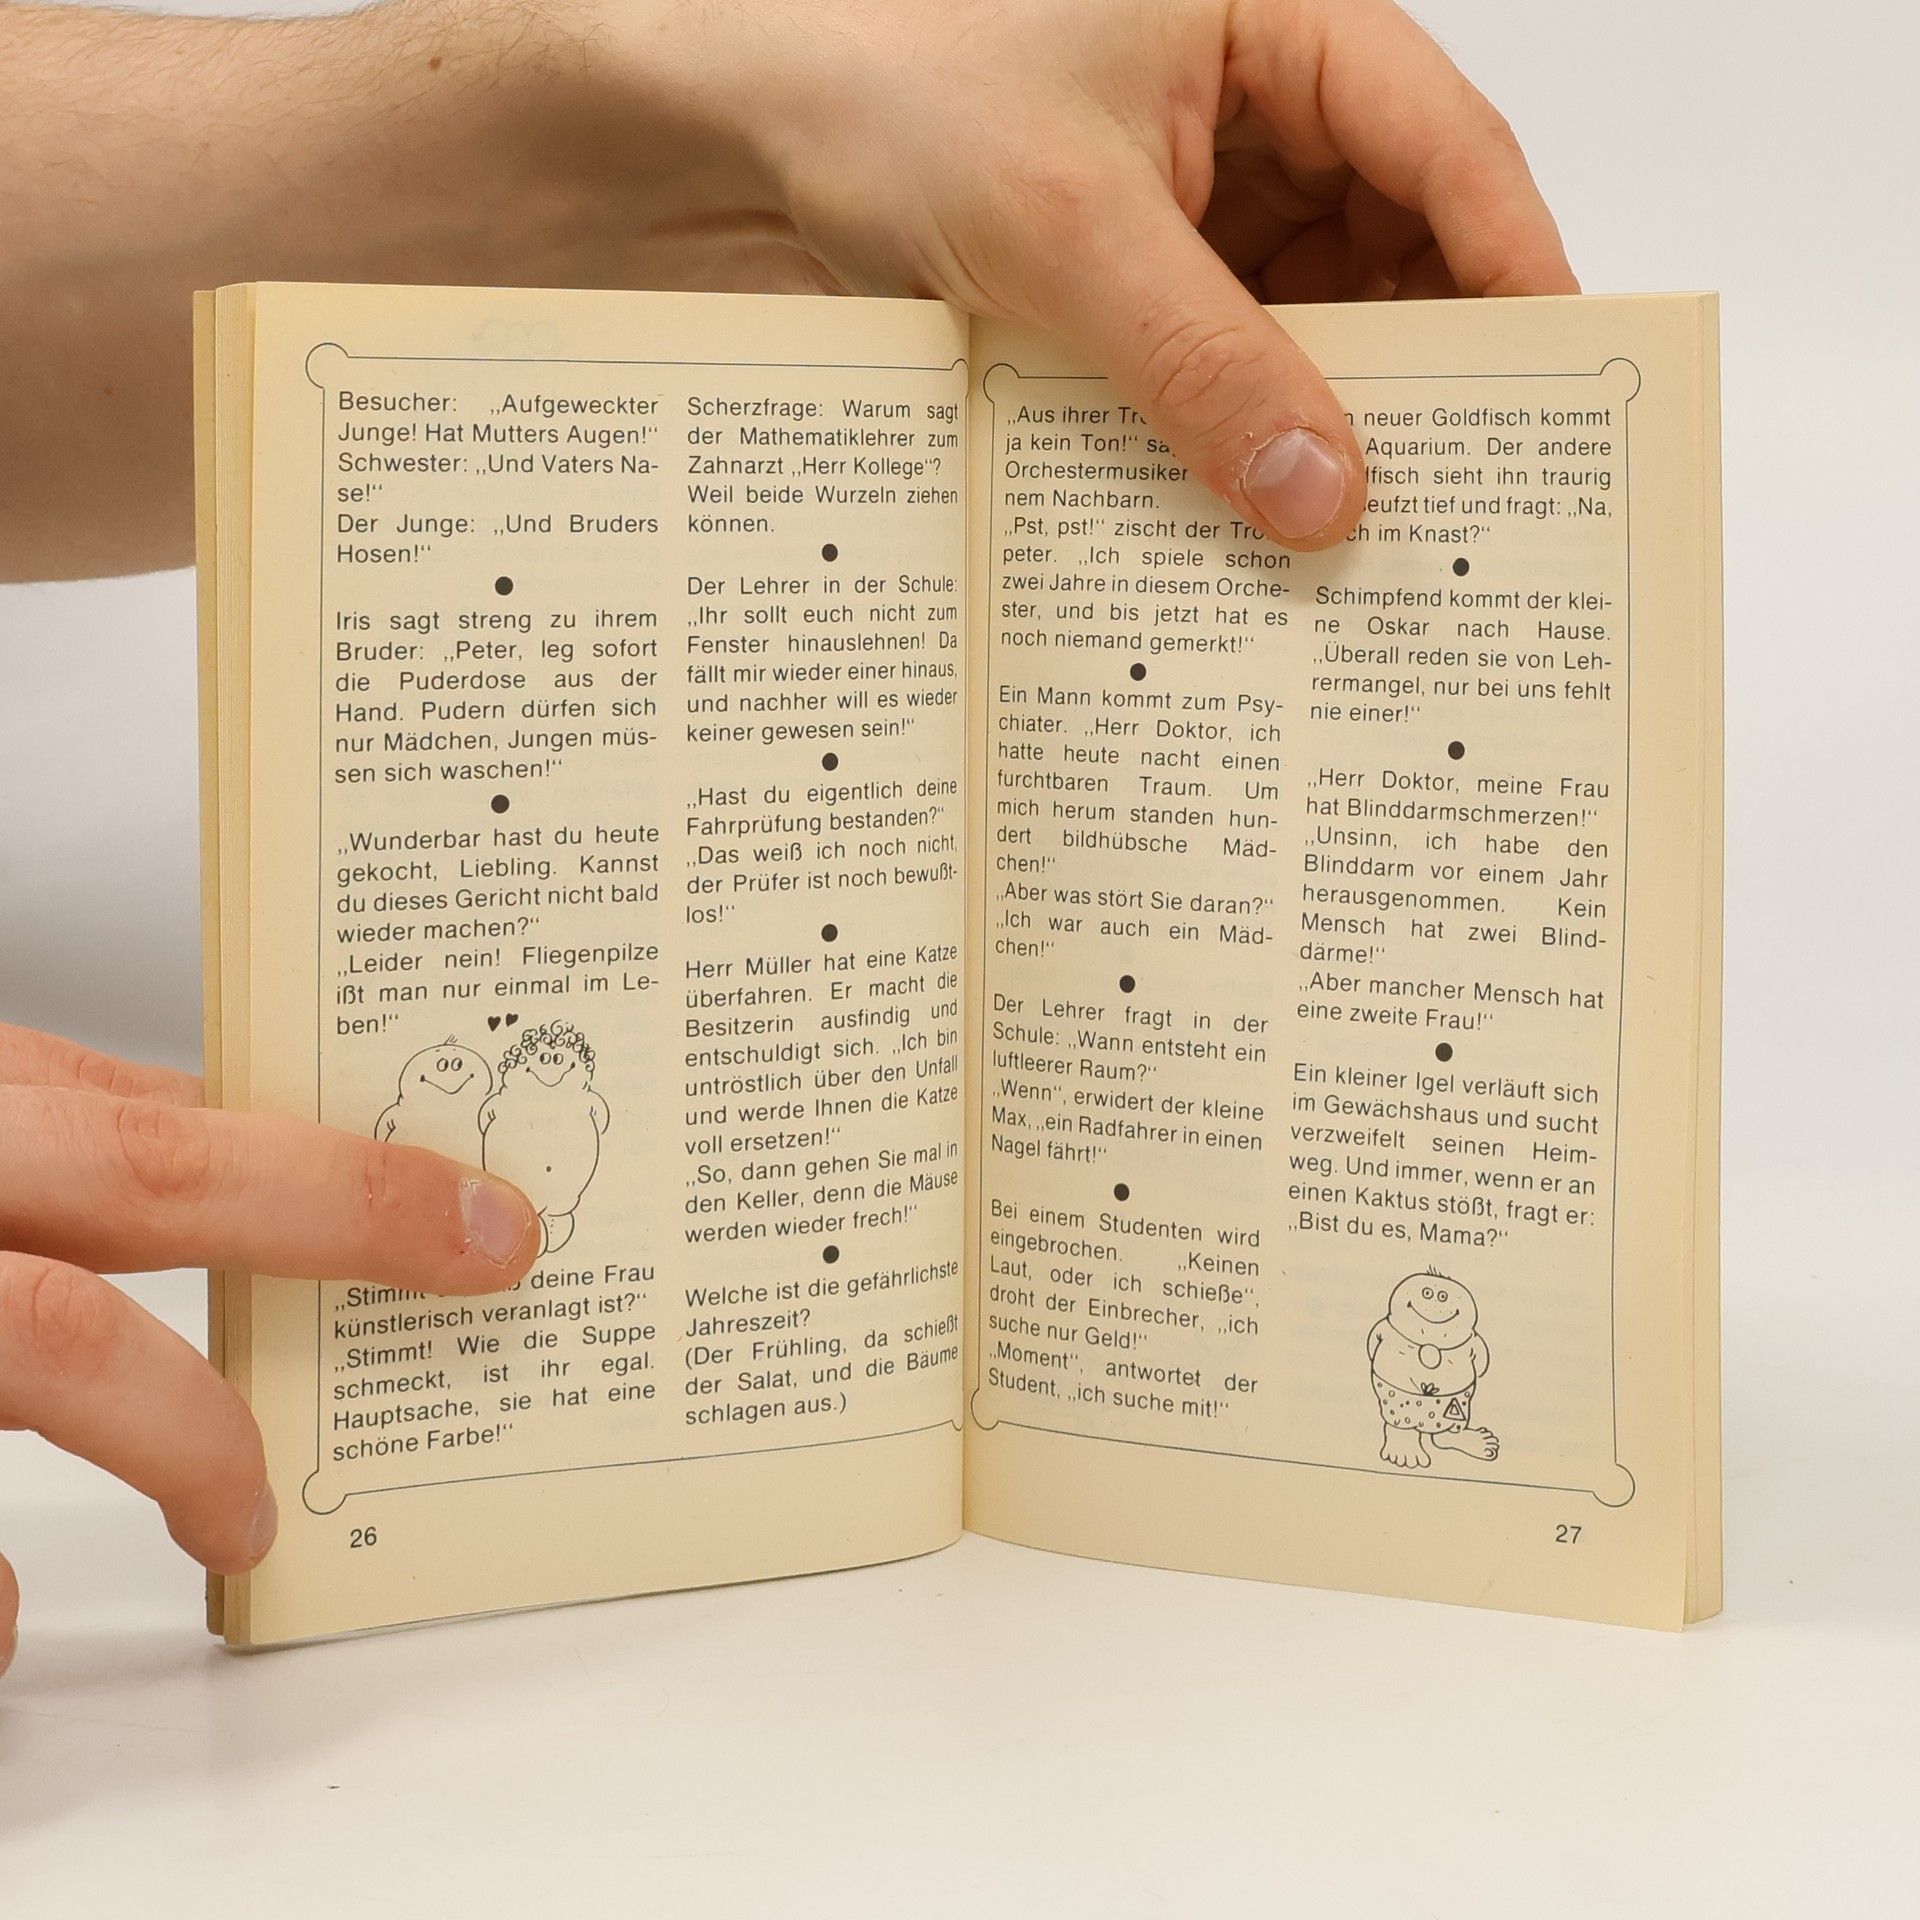 Besucher: „Aufgeweckter
Junge! Hat Mutters Augen!“
Schwester: „Und Vaters Na-
se!“
Der Junge: „Und Bruders
Hosen!“
Iris sagt streng zu ihrem
Bruder: „Peter, leg sofort
die Puderdose aus der
Hand. Pudern dürfen sich
nur Mädchen, Jungen müs-
sen sich waschen!“
„Wunderbar hast du heute
gekocht, Liebling. Kannst
du dieses Gericht nicht bald
wieder machen?“
„Leider nein! Fliegenpilze
ißt man nur einmal im Le-
ben!“
„Stimmt deine Frau
künstlerisch veranlagt ist?“
„Stimmt! Wie die Suppe
schmeckt, ist ihr egal.
Hauptsache, sie hat eine
schöne Farbe!“
26
Scherzfrage: Warum sagt
der Mathematiklehrer zum
Zahnarzt „Herr Kollege“?
Weil beide Wurzeln ziehen
können.
Der Lehrer in der Schule:
„Ihr sollt euch nicht zum
Fenster hinauslehnen! Da
fällt mir wieder einer hinaus,
und nachher will es wieder
keiner gewesen sein!“
„Hast du eigentlich deine
Fahrprüfung bestanden?“
„Das weiß ich noch nicht,
der Prüfer ist noch bewußt-
los!“
Herr Müller hat eine Katze
überfahren. Er macht die
Besitzerin ausfindig und
entschuldigt sich. „Ich bin
untröstlich über den Unfall
und werde Ihnen die Katze
voll ersetzen!“
„So, dann gehen Sie mal in
den Keller, denn die Mäuse
werden wieder frech!“
Welche ist die gefährlichste
Jahreszeit?
(Der Frühling, da schießt
der Salat, und die Bäume
schlagen aus.)
„Aus ihrer
ja kein Ton!“
Orchestermusiker
nem Nachbarn.
„Pst, pst!“ zischt der
peter. „Ich spiele schon
zwei Jahre in diesem Orche-
ster, und bis jetzt hat es
noch niemand gemerkt!“
Ein Mann kommt zum Psy-
chiater. „Herr Doktor, ich
hatte heute nacht einen
furchtbaren Traum. Um
mich herum standen hun-
dert bildhübsche Mäd-
chen!“
„Aber was stört Sie daran?“
„Ich war auch ein Mäd-
chen!“
Der Lehrer fragt in der
Schule: „Wann entsteht ein
luftleerer Raum?“
„Wenn“, erwidert der kleine
Max, „ein Radfahrer in einen
Nagel fährt!“
Bei einem Studenten wird
eingebrochen. „Keinen
Laut, oder ich schieße“,
droht der Einbrecher, „ich
suche nur Geld!“
„Moment“, antwortet der
Student, „ich suche mit!“
neuer Goldfisch kommt
Aquarium. Der andere
sieht ihn traurig
tief und fragt: „Na,
im Knast?“
Schimpfend kommt der klei-
ne Oskar nach Hause.
„Überall reden sie von Leh-
rermangel, nur bei uns fehlt
nie einer!“
„Herr Doktor, meine Frau
hat Blinddarmschmerzen!“
„Unsinn, ich habe den
Blinddarm vor einem Jahr
herausgenommen. Kein
Mensch hat zwei Blind-
därme!“
„Aber mancher Mensch hat
eine zweite Frau!“
Ein kleiner Igel verläuft sich
im Gewächshaus und sucht
verzweifelt seinen Heim-
weg. Und immer, wenn er an
einen Kaktus stößt, fragt er:
„Bist du es, Mama?“
27